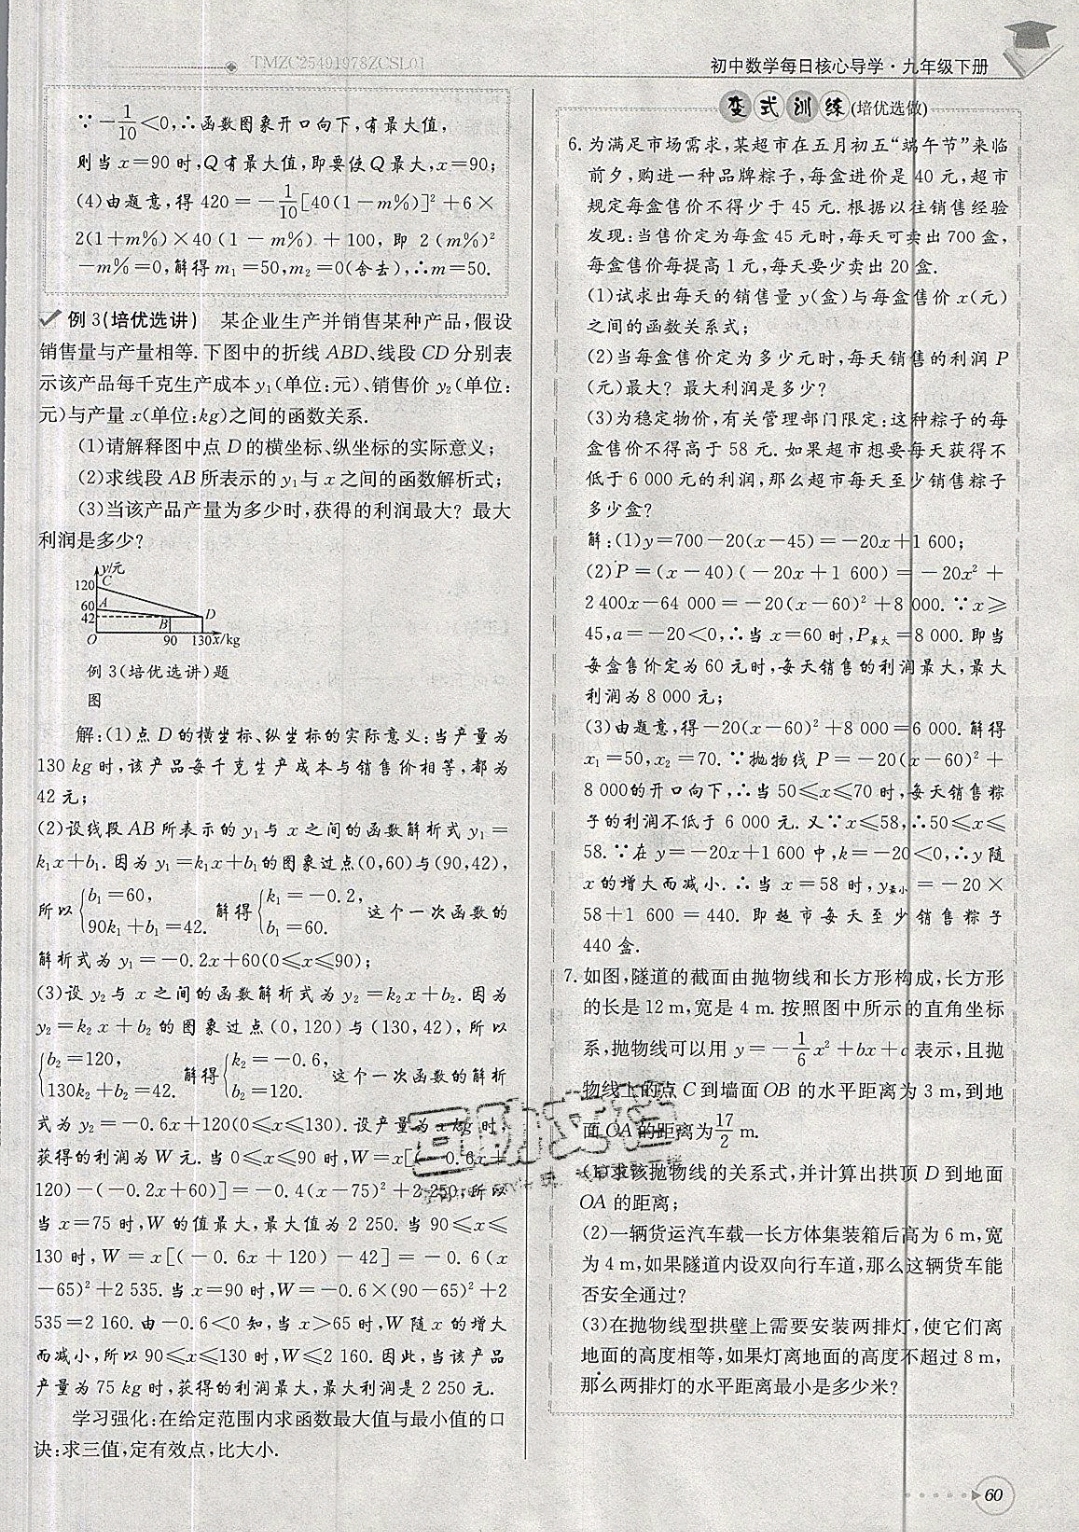 TMZC25491978ZCSL01
初中数学每日核心导学·九年级下册
∵-1/10<0,∴函数图象开口向下,有最大值,
则当x=90时,Q有最大值,即要使Q最大,x=90;
(4)由题意,得420=-1/10[40(1-m%)]²+6×
2(1+m%)×40(1-m%)+100,即2(m%)²
-m%=0,解得m₁=50,m₂=0(舍去),∴m=50.
例3(培优选讲) 某企业生产并销售某种产品,假设
销售量与产量相等.下图中的折线ABD、线段CD分别表
示该产品每千克生产成本y₁(单位:元)、销售价y₂(单位:
元)与产量x(单位:kg)之间的函数关系.
(1)请解释图中点D的横坐标、纵坐标的实际意义;
(2)求线段AB所表示的y₁与x之间的函数解析式;
(3)当该产品产量为多少时,获得的利润最大?最大
利润是多少?
y/元
120 C
60 A
42 B D
O 90 130 x/kg
例3(培优选讲)题
图
解:(1)点D的横坐标、纵坐标的实际意义:当产量为
130 kg时,该产品每千克生产成本与销售价相等,都为
42元;
(2)设线段AB所表示的y₁与x之间的函数解析式y₁=
k₁x+b₁.因为y₁=k₁x+b₁的图象过点(0,60)与(90,42),
所以{b₁=60, 90k₁+b₁=42. 解得{k₁=-0.2, b₁=60. 这个一次函数的
解析式为y₁=-0.2x+60(0≤x≤90);
(3)设y₂与x之间的函数解析式为y₂=k₂x+b₂.因为
y₂=k₂x+b₂的图象过点(0,120)与(130,42),所以
{b₂=120, 130k₂+b₂=42. 解得{k₂=-0.6, b₂=120. 这个一次函数的解析
式为y₂=-0.6x+120(0≤x≤130).设产量为x kg时,
获得的利润为W元.当0≤x≤90时,W=x[(-0.6x+
120)-(-0.2x+60)]=-0.4(x-75)²+2 250,所以
当x=75时,W的值最大,最大值为2 250.当90≤x≤
130时,W=x[(-0.6x+120)-42]=-0.6(x
-65)²+2 535.当x=90时,W=-0.6×(90-65)²+2
535=2 160.由-0.6<0知,当x>65时,W随x的增大
而减小,所以90≤x≤130时,W≤2 160.因此,当该产品
产量为75 kg时,获得的利润最大,最大利润是2 250元.
学习强化:在给定范围内求函数最大值与最小值的口
诀:求三值,定有效点,比大小.
变式训练(培优选做)
6.为满足市场需求,某超市在五月初五“端午节”来临
前夕,购进一种品牌粽子,每盒进价是40元,超市
规定每盒售价不得少于45元.根据以往销售经验
发现:当售价定为每盒45元时,每天可卖出700盒,
每盒售价每提高1元,每天要少卖出20盒.
(1)试求出每天的销售量y(盒)与每盒售价x(元)
之间的函数关系式;
(2)当每盒售价定为多少元时,每天销售的利润P
(元)最大?最大利润是多少?
(3)为稳定物价,有关管理部门限定:这种粽子的每
盒售价不得高于58元.如果超市想要每天获得不
低于6 000元的利润,那么超市每天至少销售粽子
多少盒?
解:(1)y=700-20(x-45)=-20x+1 600;
(2)P=(x-40)(-20x+1 600)=-20x²+
2 400x-64 000=-20(x-60)²+8 000.∵x≥
45,a=-20<0,∴当x=60时,P最大=8 000.即当
每盒售价定为60元时,每天销售的利润最大,最大
利润为8 000元;
(3)由题意,得-20(x-60)²+8 000=6 000.解得
x₁=50,x₂=70.∵抛物线P=-20(x-60)²+
8 000的开口向下,∴当50≤x≤70时,每天销售粽
子的利润不低于6 000元.又∵x≤58,∴50≤x≤
58.∵在y=-20x+1 600中,k=-20<0,∴y随
x的增大而减小.∴当x=58时,y最小=-20×
58+1 600=440.即超市每天至少销售粽子
440盒.
7.如图,隧道的截面由抛物线和长方形构成,长方形
的长是12 m,宽是4 m.按照图中所示的直角坐标
系,抛物线可以用y=-1/6x²+bx+c表示,且抛
物线上的点C到墙面OB的水平距离为3 m,到地
面OA的距离为17/2 m.
(1)求该抛物线的关系式,并计算出拱顶D到地面
OA的距离;
(2)一辆货运汽车载一长方体集装箱后高为6 m,宽
为4 m,如果隧道内设双向行车道,那么这辆货车能
否安全通过?
(3)在抛物线型拱壁上需要安装两排灯,使它们离
地面的高度相等,如果灯离地面的高度不超过8 m,
那么两排灯的水平距离最小是多少米?
60